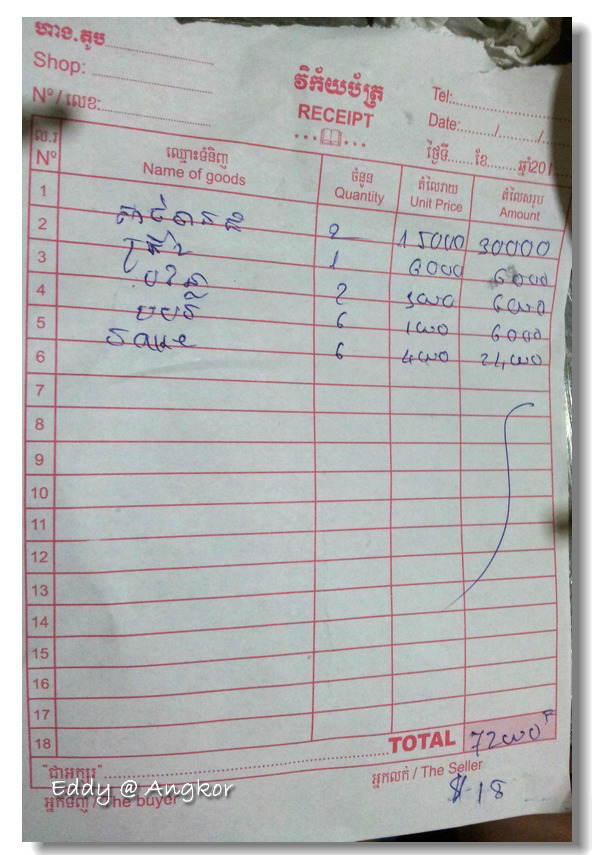 ហាង.តូប
Shop:
Nº / លេខ:
វិក័យប័ត្រ
RECEIPT
Tel:
Date: / /
ថ្ងៃទី ខែ ឆ្នាំ201
ល.រ ឈ្មោះទំនិញ ចំនួន តំលៃរាយ តំលៃសរុប
Nº Name of goods Quantity Unit Price Amount
1 2 15000 30000
2 1 6000 6000
3 2 3000 6000
4 6 1000 6000
5 6 4000 24000
6
7
8
9
10
11
12
13
14
15
16
17
18
TOTAL 72000
"ជាអក្សរ"
អ្នកទិញ / The buyer
អ្នកលក់ / The Seller
$ 18
Eddy @ Angkor